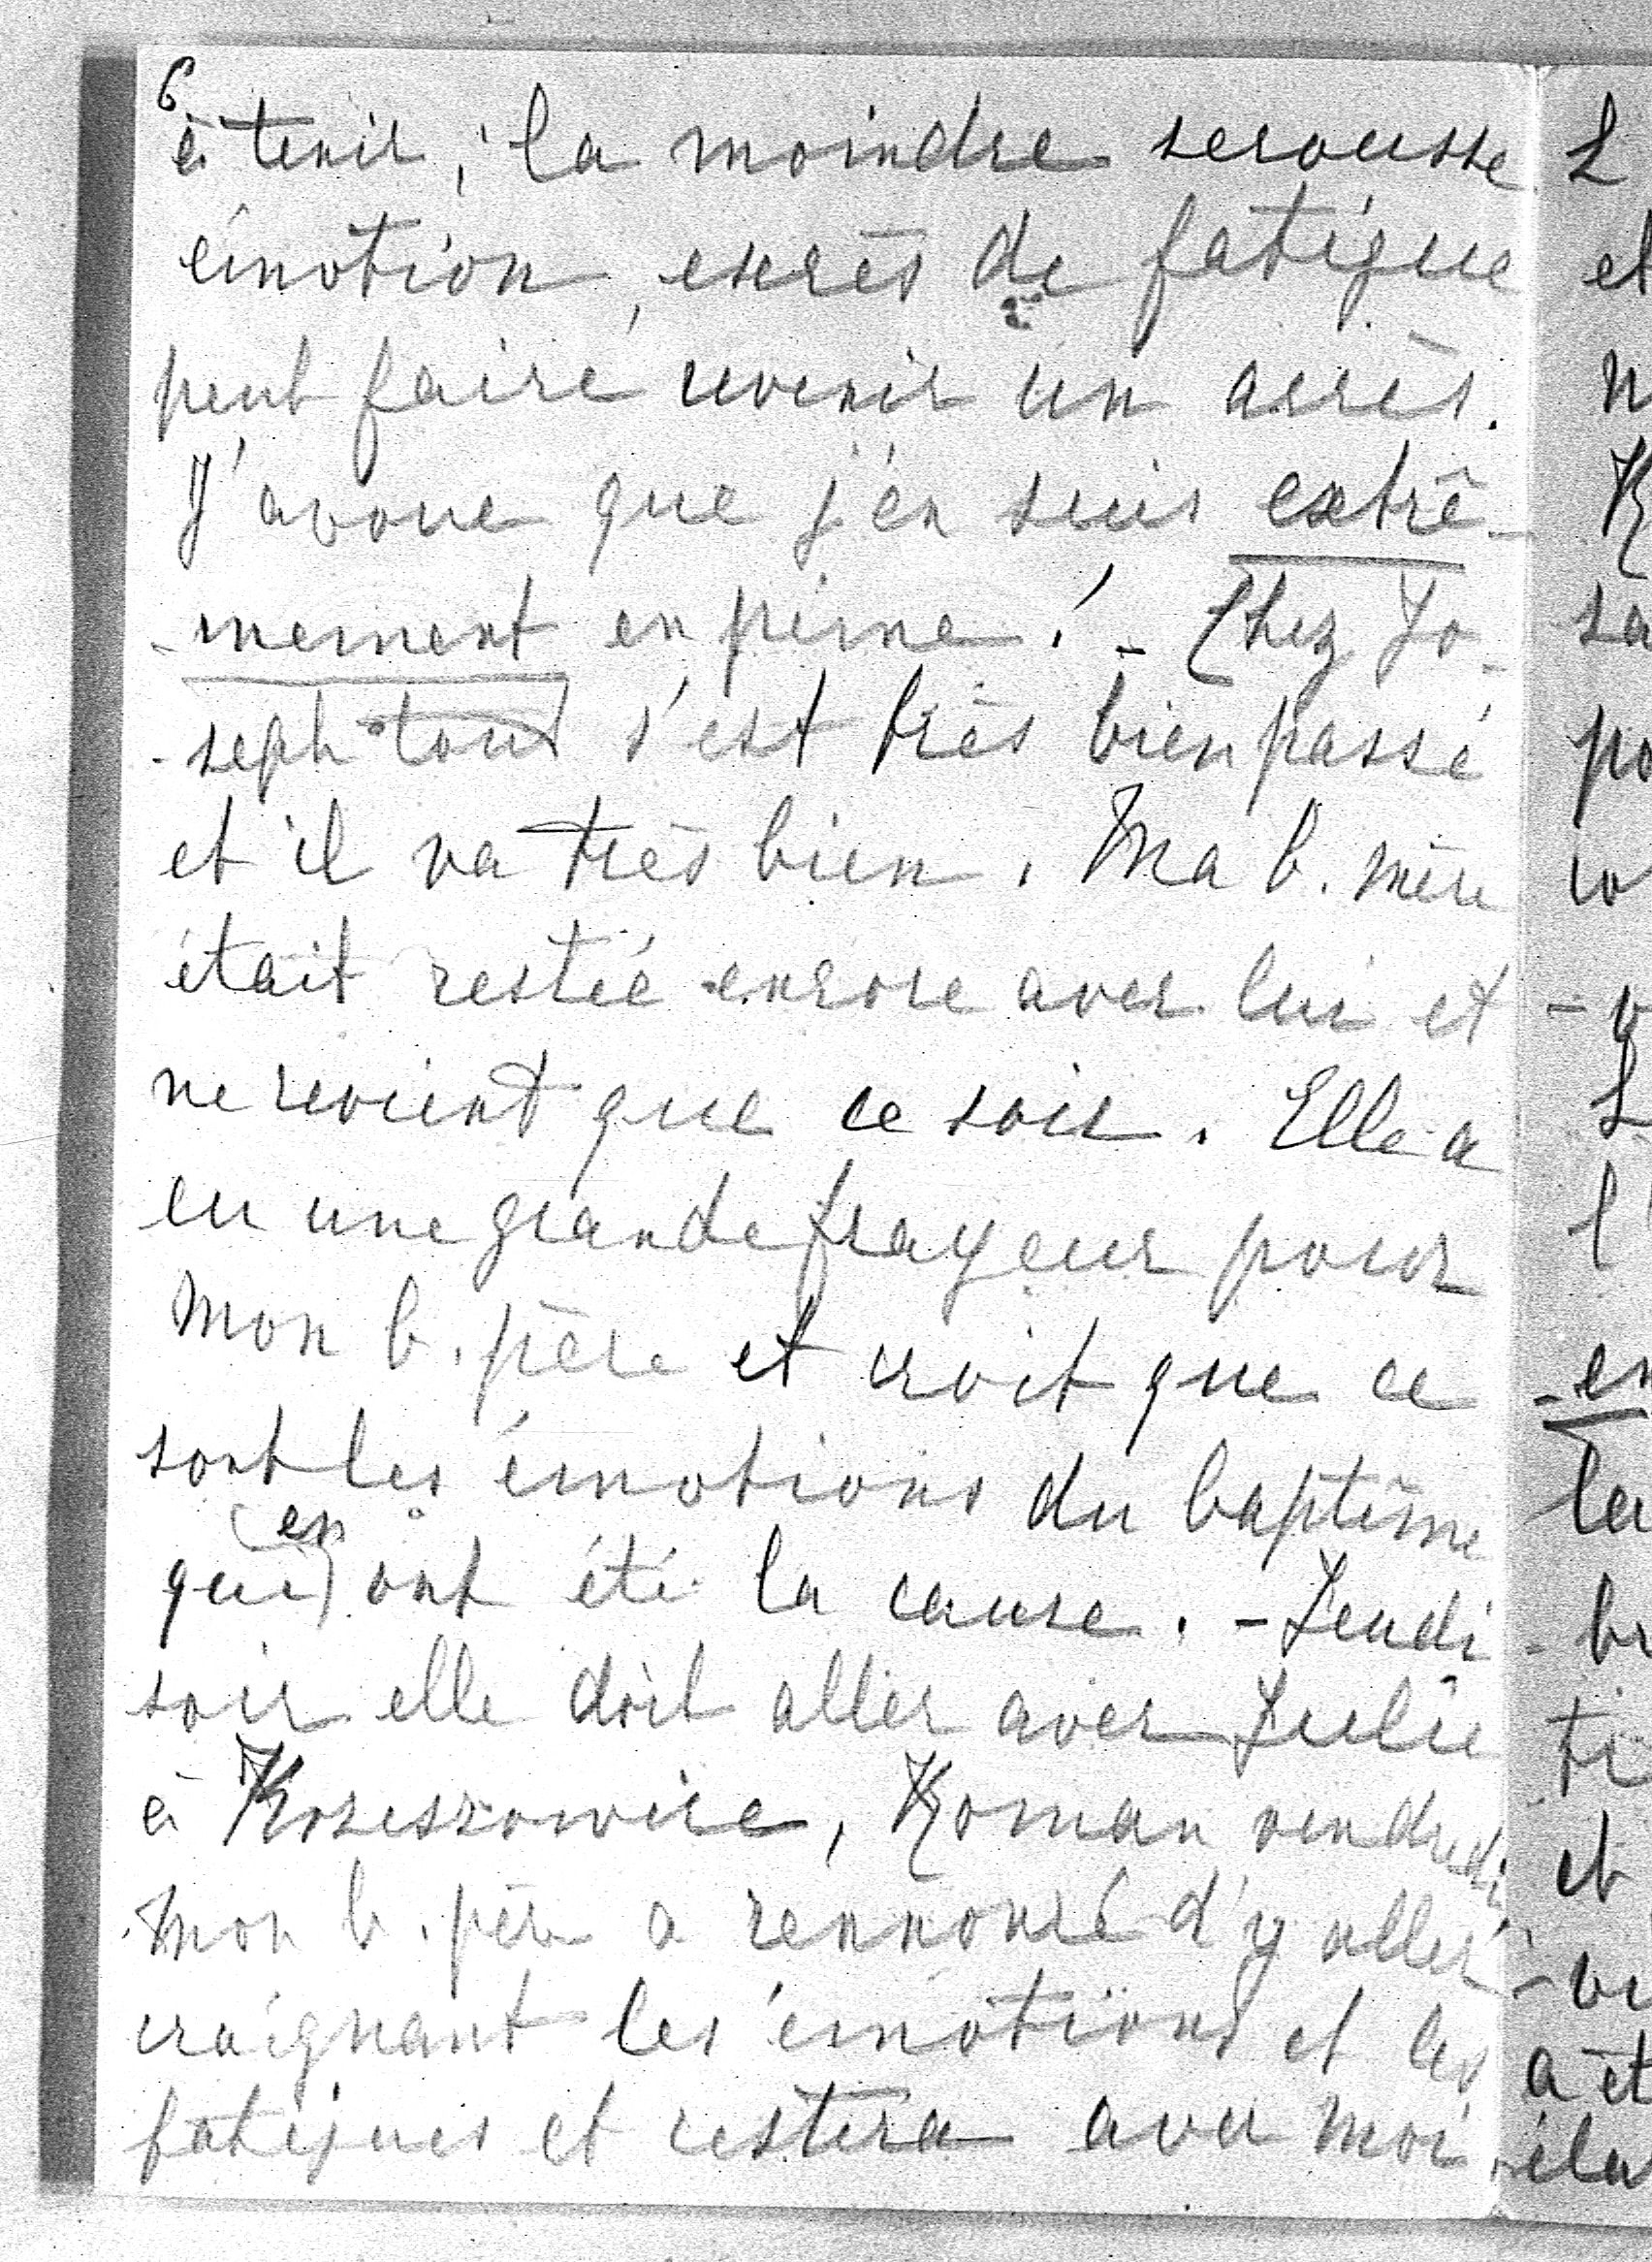 6
à tenir; la moindre secousse
émotion, excès de fatigue
peut faire revenir un accès.
J'avoue que j'en suis extrê-
-mement en peine! - Chez Jo-
-seph tout s'est très bien passé
et il va très bien. Ma b. mère
était restée encore avec lui et
ne revient que ce soir. Elle a
eu une grande frayeur pour
mon b. père et croit que ce
sont les émotions du baptême
qui en ont été la cause. - Jeudi
soir elle doit aller avec Julie
à Krzeszowice, Roman vendredi
mon b. père a rennoncé d'y aller
craignant les émotions et les
fatigues et restera avec moi.